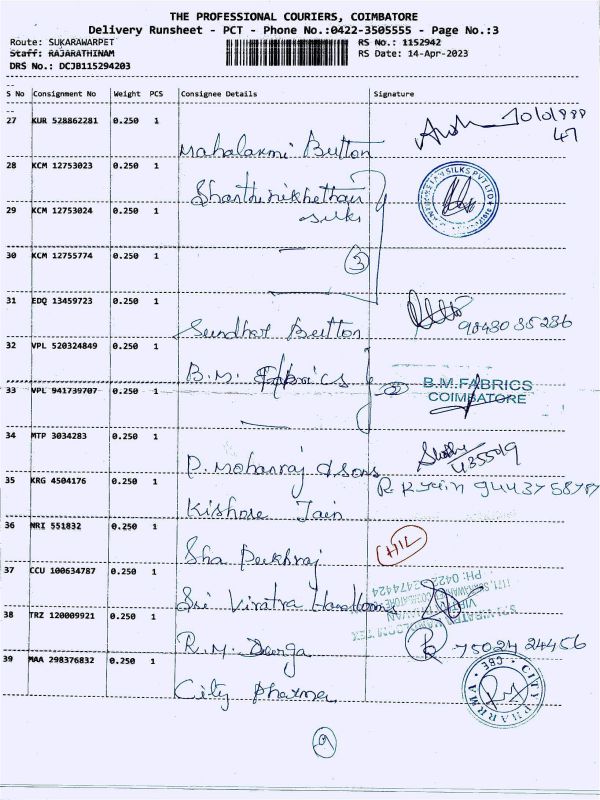 THE PROFESSIONAL COURIERS, COIMBATORE
Delivery Runsheet - PCT - Phone No.:0422-3505555 - Page No.:3
Route: SUKARAWARPET
RS No.: 1152942
Staff: RAJARATHINAM
RS Date: 14-Apr-2023
DRS No.: DCJB115294203
S No Consignment No Weight PCS Consignee Details Signature
27 KUR 528862281 0.250 1
Mahalaxmi Button
28 KCM 12753023 0.250 1
Shanthinikhethan
Silks
29 KCM 12753024 0.250 1
30 KCM 12755774 0.250 1
3
31 EDQ 13459723 0.250 1
Sundhar Button
32 VPL 520324849 0.250 1
B.M. Fabrics
33 VPL 941739707 0.250 1
B.M.FABRICS
COIMBATORE
34 MTP 3034283 0.250 1
P. Mohanraj & sons
435519
35 KRG 4504176 0.250 1
Kishore Jain
36 NRI 551832 0.250 1
37 CCU 100634787 0.250 1
38 TRZ 120009921 0.250 1
R.M. Durga
75024 24456
39 MAA 298376832 0.250 1
City Pharma
CITY PHARMA
CBE
9